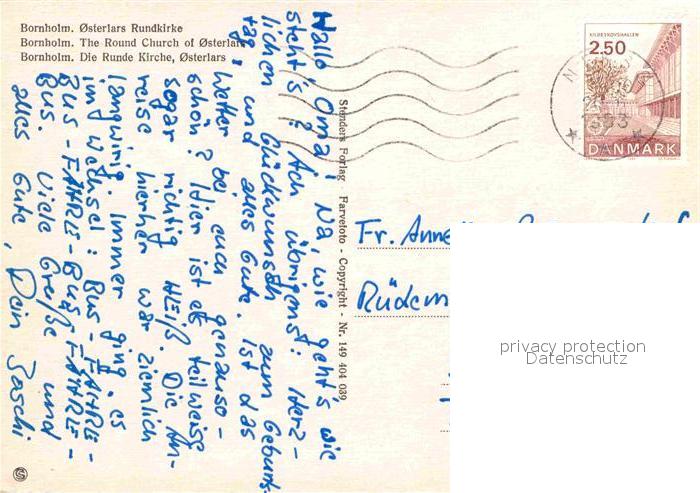 Bornholm. Østerlars Rundkirke
Bornholm. The Round Church of Østerlars
Bornholm. Die Runde Kirche, Østerlars
Hallo Oma! Na, wie geht's wie
steht's? Ach übrigens: Herz-
lichen Glückwunsch zum Geburts-
tag, und alles Gute. Ist das
Wetter bei euch genauso-
schön? Hier ist es teilweise
sogar richtig HEIß. Die An-
reise hierher war ziemlich
langwirig. Immer ging es
im Wechsel: BUS-FÄHRE-
BUS-FÄHRE-BUS-FÄHRE-
BUS. Viele Grüße und
alles Gute, Dein Saschi
Stenders Forlag Farvefoto - Copyright - Nr. 149 404 039
KILDESKOVSHALLEN
2.50
DANMARK
Fr. Anne
Rüdem
privacy protection
Datenschutz